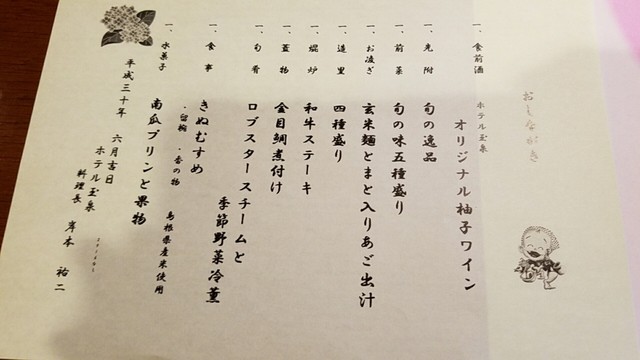 おしながき
一、食前酒 ホテル玉泉
オリジナル柚子ワイン
一、先附 旬の逸品
一、前菜 旬の味五種盛り
一、お凌ぎ 玄米麺とまと入りあご出汁
一、造里 四種盛り
一、焜炉 和牛ステーキ
一、蓋物 金目鯛煮付け
一、旬肴 ロブスタースチームと
季節野菜冷薫
一、食事 きぬむすめ 島根県産米使用
・留椀 ・香の物
一、水菓子 南瓜プリンと果物
平成三十年 六月吉日
ホテル玉泉
料理長 岸本 祐二